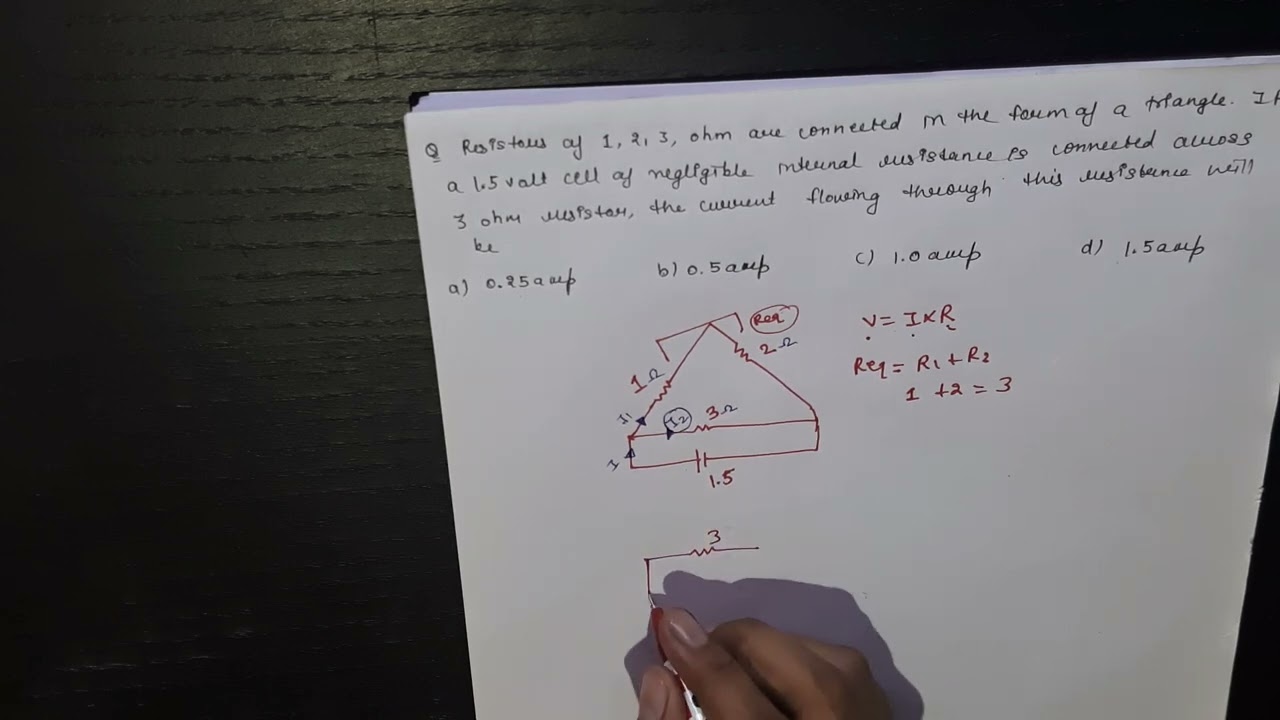 Q Resistors of 1, 2, 3, ohm are connected in the form of a triangle. If
a 1.5 volt cell of negligible internal resistance is connected across
3 ohm resistor, the current flowing through this resistance will
be
a) 0.25 amp b) 0.5 amp c) 1.0 amp d) 1.5 amp
Req
V = I × R
1 Ω 2 Ω
Req = R1 + R2
1 + 2 = 3
I1 I2 3 Ω
I
1.5
3